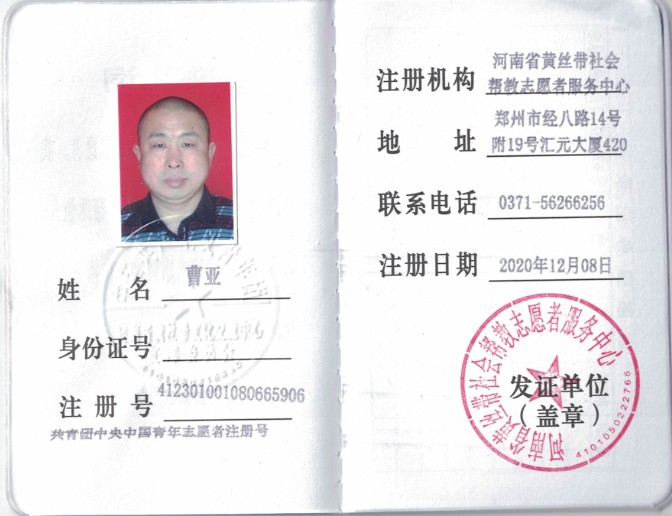 姓 名 曹亚
身份证号
注 册 号 412301001080665906
共青团中央中国青年志愿者注册号
注册机构 河南省黄丝带社会
帮教志愿者服务中心
地 址 郑州市经八路14号
附19号汇元大厦420
联系电话 0371-56266256
注册日期 2020年12月08日
河南省黄丝带社会帮教志愿者服务中心
发证单位
（盖章）
4101050222766